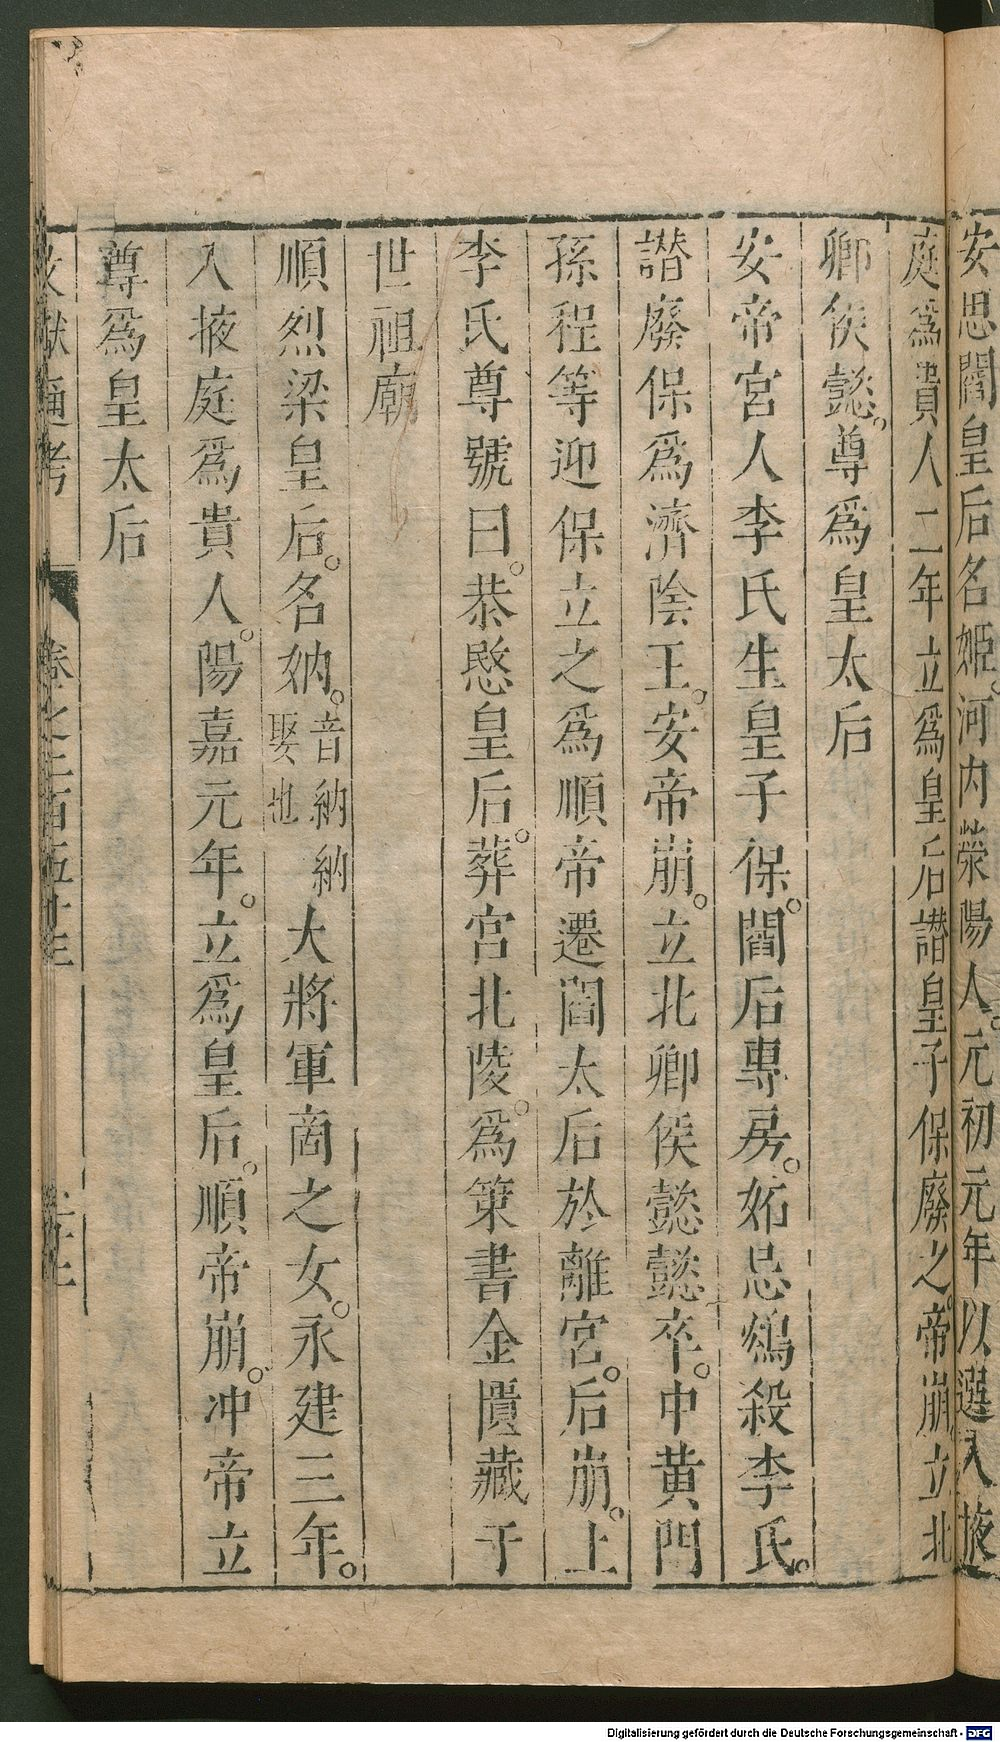 安思閻皇后名姬。河内滎陽人。元初元年以選入掖
庭爲貴人二年立爲皇后譖皇子保廢之。帝崩。立北
鄉侯懿。尊爲皇太后
安帝宮人李氏生皇子保。閻后專房。妬忌鴆殺李氏。
譖廢保爲濟陰王。安帝崩。立北鄉侯懿懿卒。中黃門
孫程等迎保立之爲順帝遷閻太后於離宮。后崩。上
李氏尊號曰。恭愍皇后。葬宮北陵。爲策書金匱藏于
世祖廟
順烈梁皇后。名妠。音納納娶也大將軍商之女。永建三年。
入掖庭爲貴人。陽嘉元年。立爲皇后。順帝崩。冲帝立
尊爲皇太后
文獻通考 卷之二百五十三
Digitalisierung gefördert durch die Deutsche Forschungsgemeinschaft - DFG